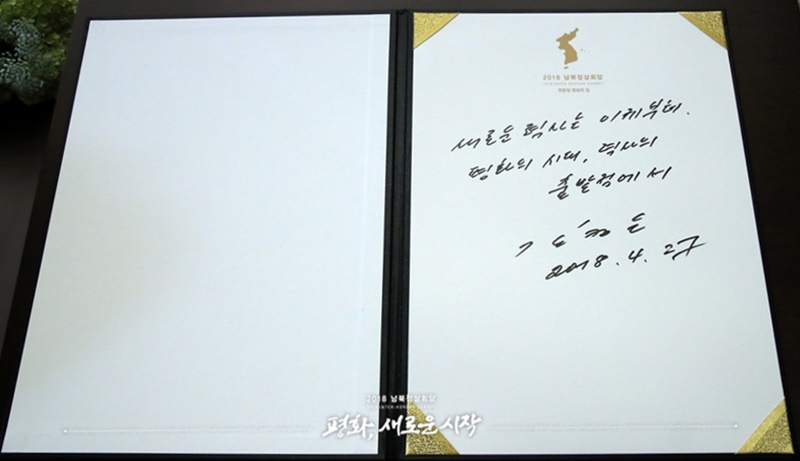 2018 남북정상회담
2018 INTER-KOREAN SUMMIT
판문점 평화의 집
새로운 력사는 이제부터.
평화의 시대, 력사의
출발점에서
김정은
2018. 4. 27
2018 남북정상회담
INTER-KOREAN SUMMIT
평화, 새로운 시작